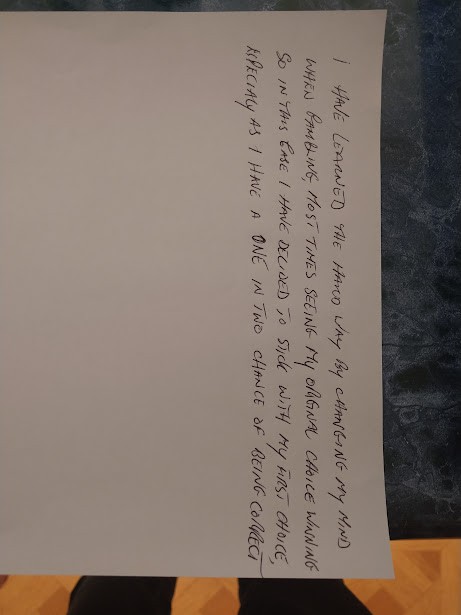 I HAVE LEARNED THE HARD WAY BY CHANGING MY MIND
WHEN GAMBLING, MOST TIMES SEEING MY ORIGINAL CHOICE WINNING
SO IN THIS CASE I HAVE DECIDED TO STICK WITH MY FIRST CHOICE,
ESPECIALY AS I HAVE A ONE IN TWO CHANCE OF BEING CORRECT